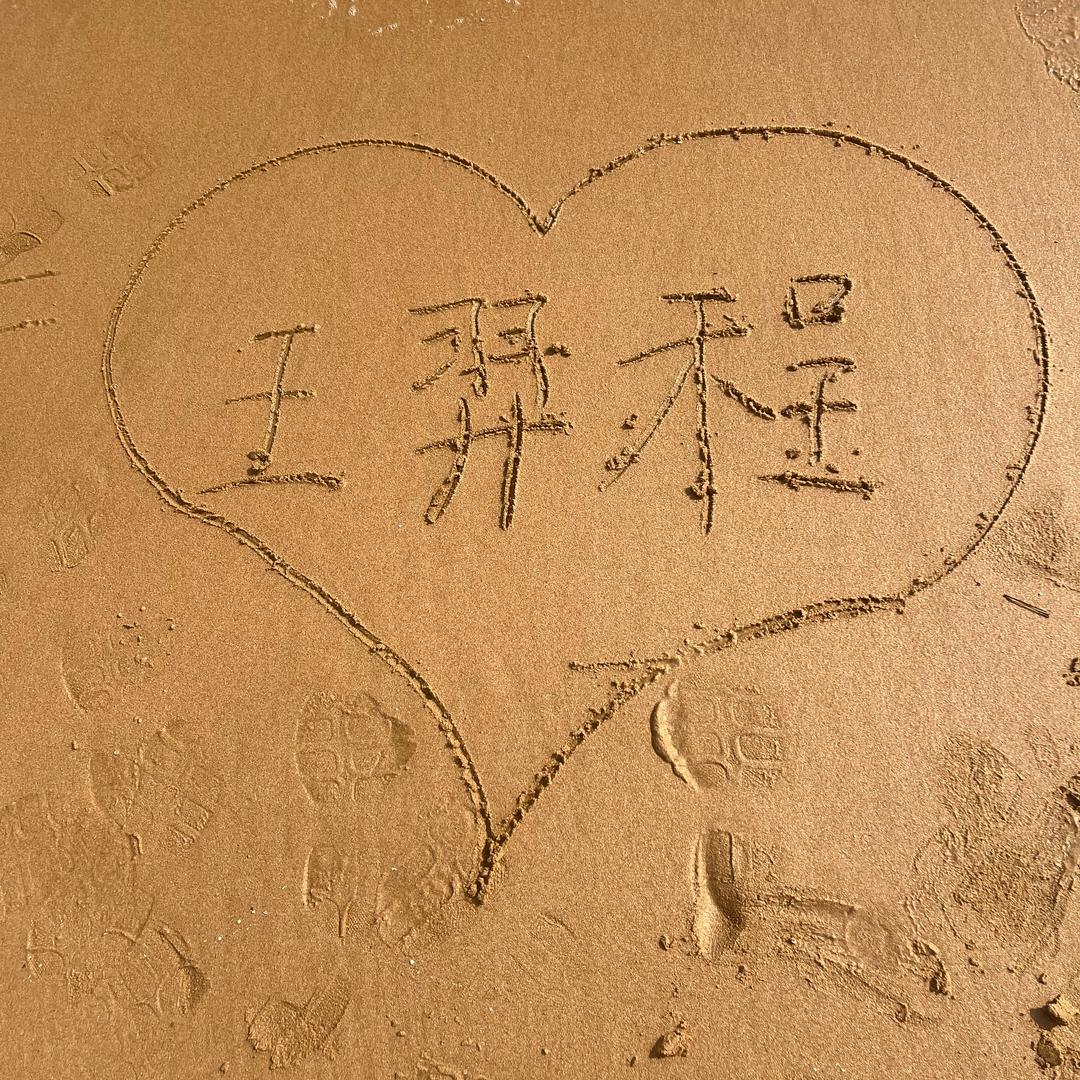 王羿程